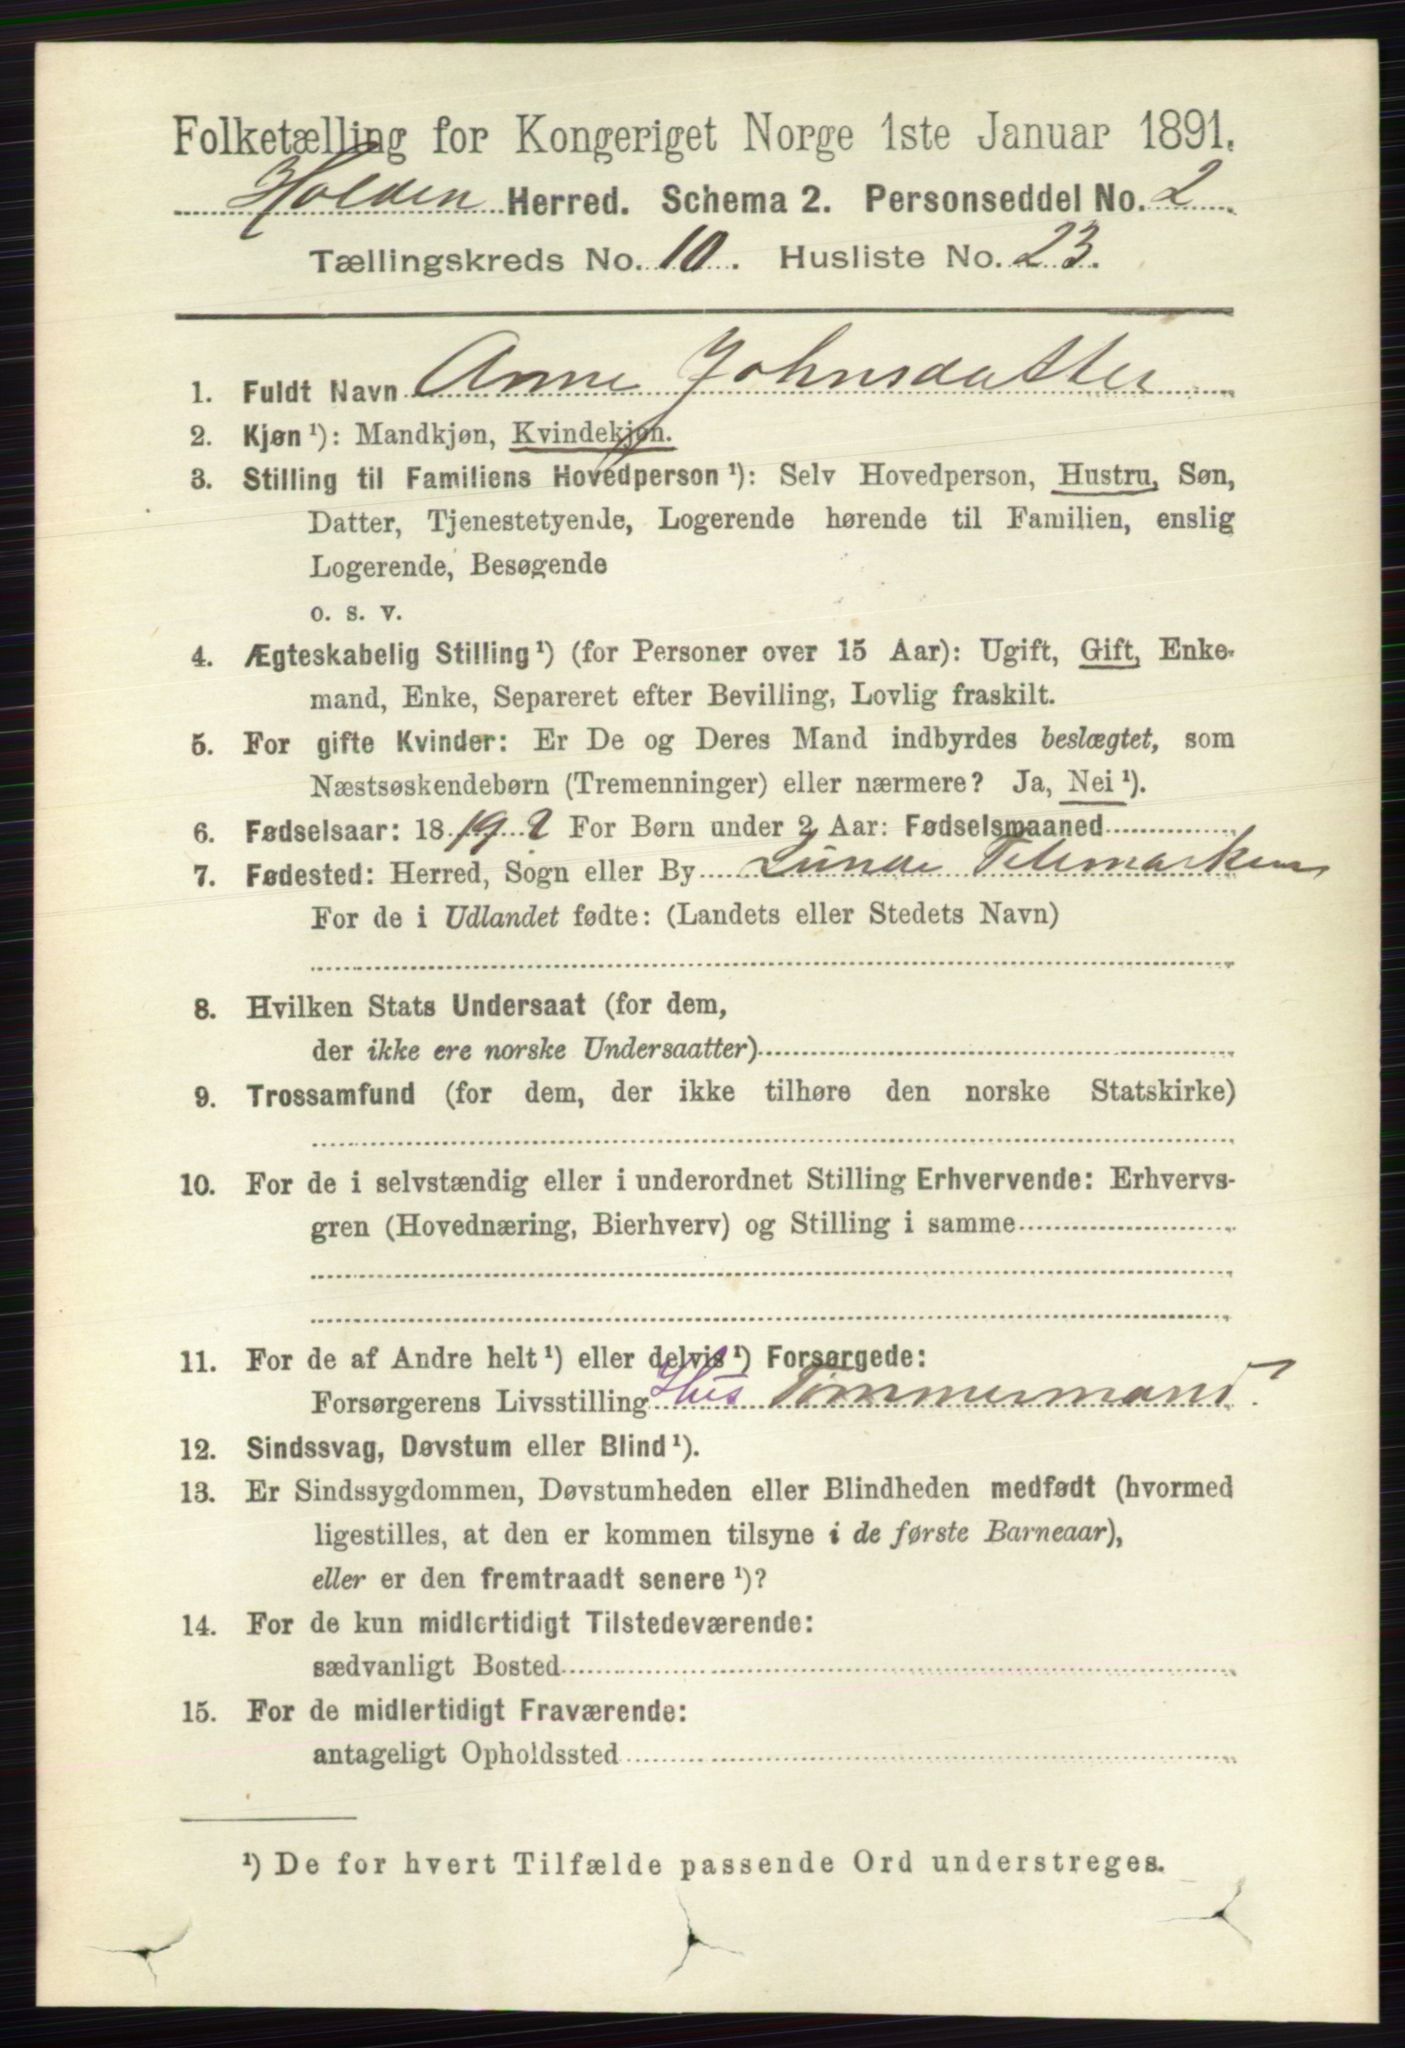 Folketælling for Kongeriget Norge 1ste Januar 1891.
Holden Herred. Schema 2. Personseddel No. 2
Tællingskreds No. 10. Husliste No. 23.
1. Fuldt Navn Anne Johnsdatter
2. Kjøn ¹): Mandkjøn, Kvindekjøn.
3. Stilling til Familiens Hovedperson ¹): Selv Hovedperson, Hustru, Søn,
Datter, Tjenestetyende, Logerende hørende til Familien, enslig
Logerende, Besøgende
o. s. v.
4. Ægteskabelig Stilling ¹) (for Personer over 15 Aar): Ugift, Gift, Enke-
mand, Enke, Separeret efter Bevilling, Lovlig fraskilt.
5. For gifte Kvinder: Er De og Deres Mand indbyrdes beslægtet, som
Næstsøskendebørn (Tremenninger) eller nærmere? Ja, Nei ¹).
6. Fødselsaar: 18 For Børn under 2 Aar: Fødselsmaaned
7. Fødested: Herred, Sogn eller By Lunde Telemarken
For de i Udlandet fødte: (Landets eller Stedets Navn)
8. Hvilken Stats Undersaat (for dem,
der ikke ere norske Undersaatter)
9. Trossamfund (for dem, der ikke tilhøre den norske Statskirke)
10. For de i selvstændig eller i underordnet Stilling Erhvervende: Erhvervs-
gren (Hovednæring, Bierhverv) og Stilling i samme
11. For de af Andre helt ¹) eller delvis ¹) Forsørgede:
Forsørgerens Livsstilling Hus Tømmermand.
12. Sindssvag, Døvstum eller Blind ¹).
13. Er Sindssygdommen, Døvstumheden eller Blindheden medfødt (hvormed
ligestilles, at den er kommen tilsyne i de første Barneaar),
eller er den fremtraadt senere ¹)?
14. For de kun midlertidigt Tilstedeværende:
sædvanligt Bosted
15. For de midlertidigt Fraværende:
antageligt Opholdssted
¹) De for hvert Tilfælde passende Ord understreges.